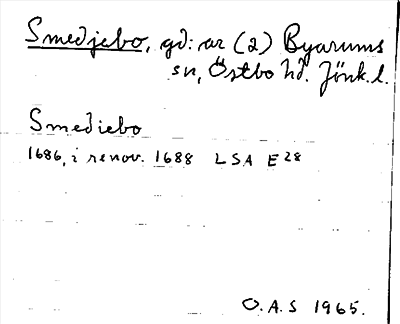 Smedjebo, gd: ar (2) Byarums
sn, Östbo hd. Jönk. l.
Smediebo
1686, i renov. 1688 LSA E 28
O.A.S 1965.